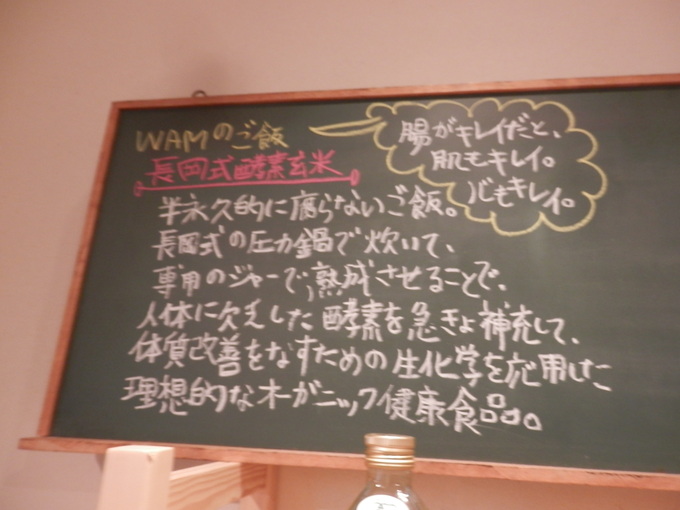 WAMのご飯
長岡式酵素玄米
腸がキレイだと、
肌もキレイ。
心もキレイ。
半永久的に腐らないご飯。
長岡式の圧力鍋で炊いて、
専用のジャーで熟成させることで、
人体に欠乏した酵素を急きょ補充して、
体質改善をなすための生化学を応用した
理想的なオーガニック健康食品。